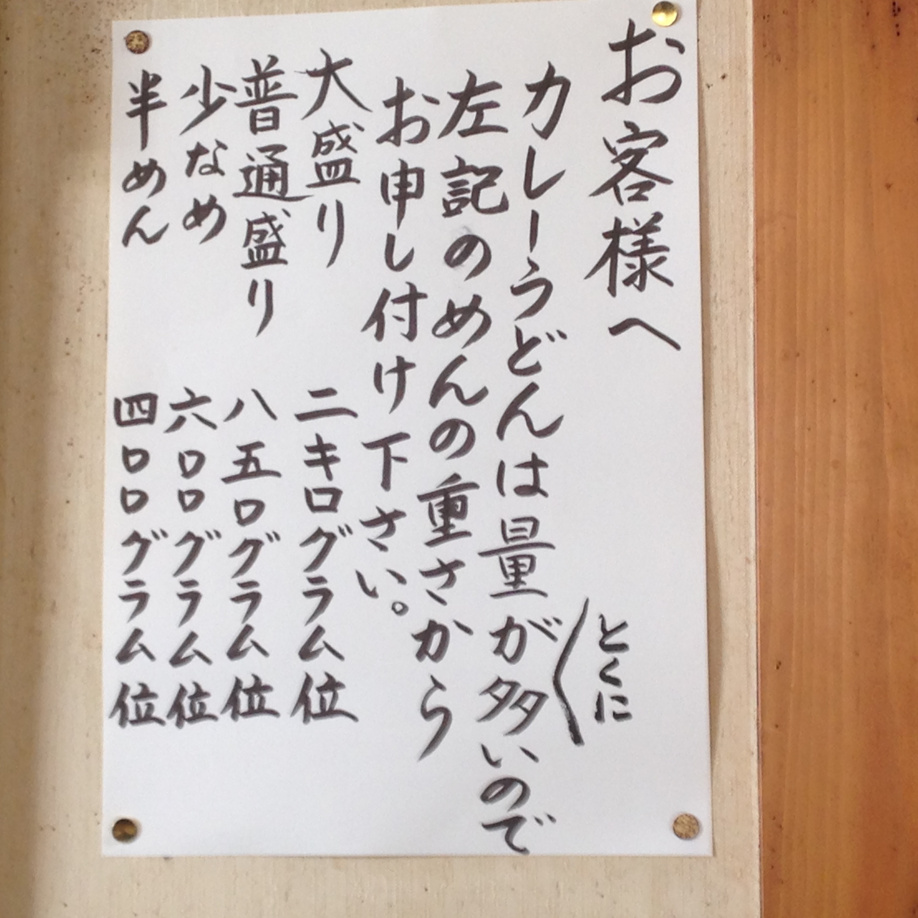 お客様へ
カレーうどんは量が多いので
とくに
左記のめんの重さから
お申し付け下さい。
大盛り 二キログラム位
普通盛り 八五〇グラム位
少なめ 六〇〇グラム位
半めん 四〇〇グラム位